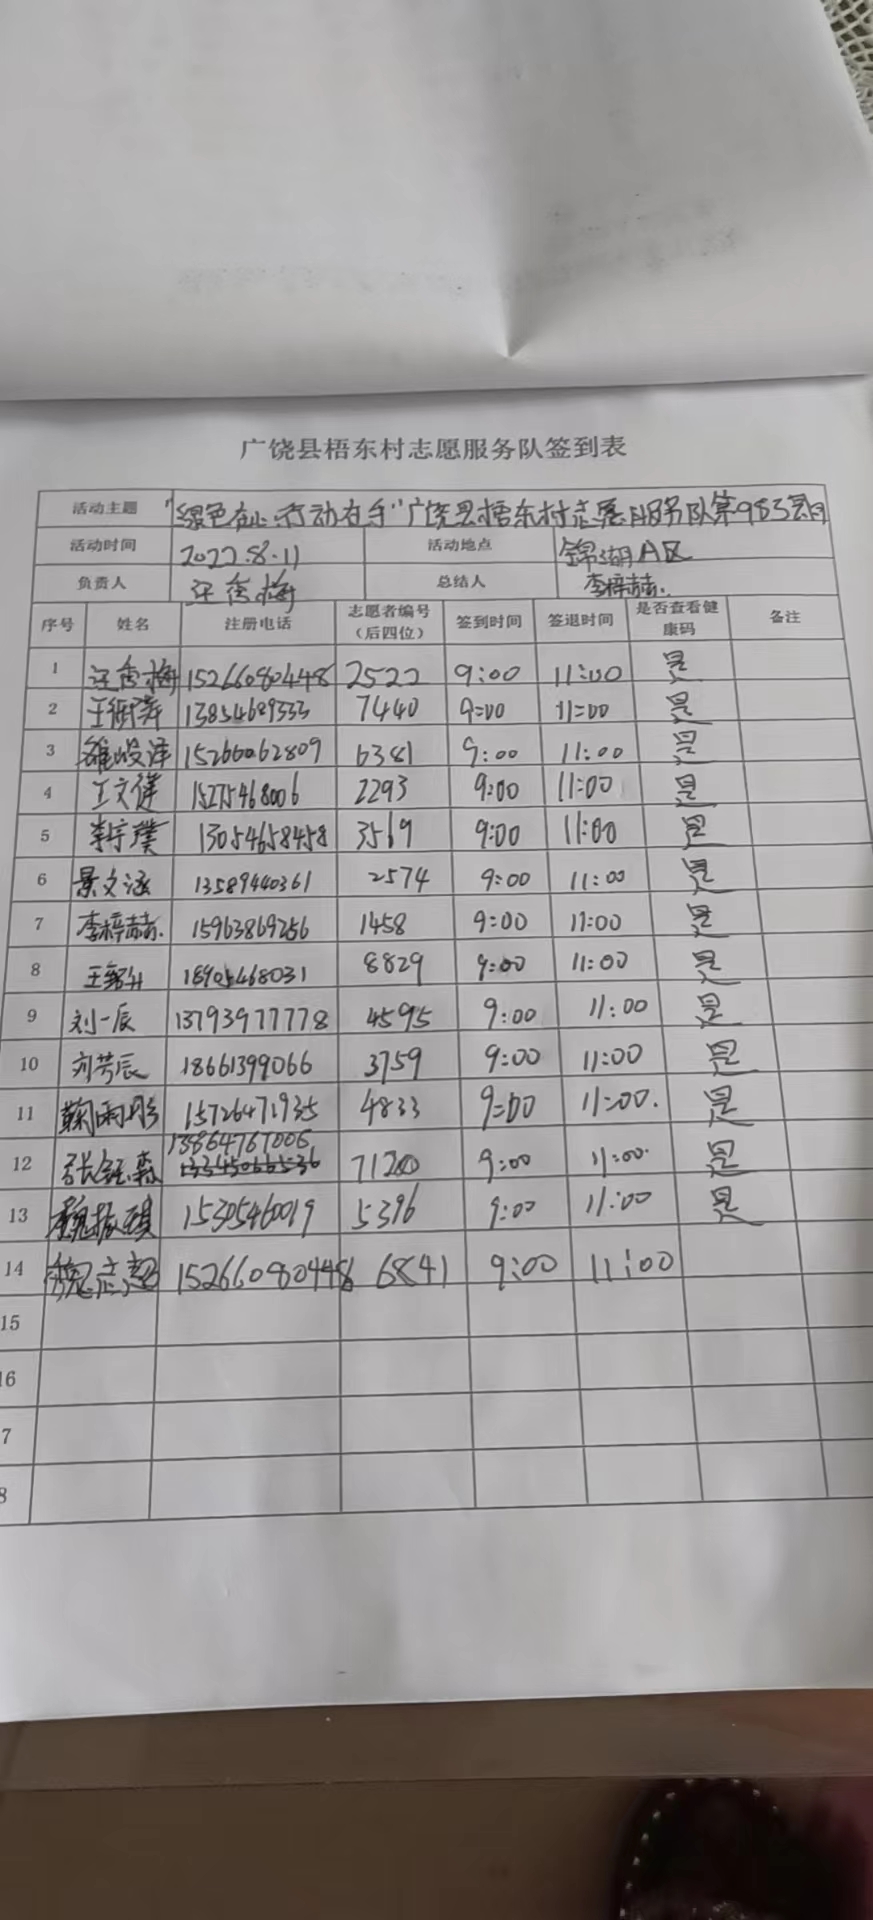 广饶县梧东村志愿服务队签到表
活动主题 "绿色在心·行动在手"广饶县梧东村志愿服务队第983期
活动时间 2022.8.11 活动地点 锦湖A区
负责人 汪秀梅 总结人 李梓赫
序号 姓名 注册电话 志愿者编号（后四位） 签到时间 签退时间 是否查看健康码 备注
1 汪秀梅 15266080448 2522 9:00 11:00 是
2 王 13854689333 7440 9:00 11:00 是
3 15266062809 6381 9:00 11:00 是
4 王文健 15275468006 2293 9:00 11:00 是
5 李宇璞 13054658458 3519 9:00 11:00 是
6 景文涵 13589440361 2574 9:00 11:00 是
7 李梓赫 15963869256 1458 9:00 11:00 是
8 王 18905468031 8829 9:00 11:00 是
9 刘一辰 13793977778 4595 9:00 11:00 是
10 刘芳辰 18661399066 3759 9:00 11:00 是
11 鞠雨彤 15726471935 4833 9:00 11:00. 是
12 张钰森 13864767006 9:00 11:00 是
13 魏振 15305460019 5396 9:00 11:00 是
14 魏志超 15266080448 6841 9:00 11:00
15
16
7
8